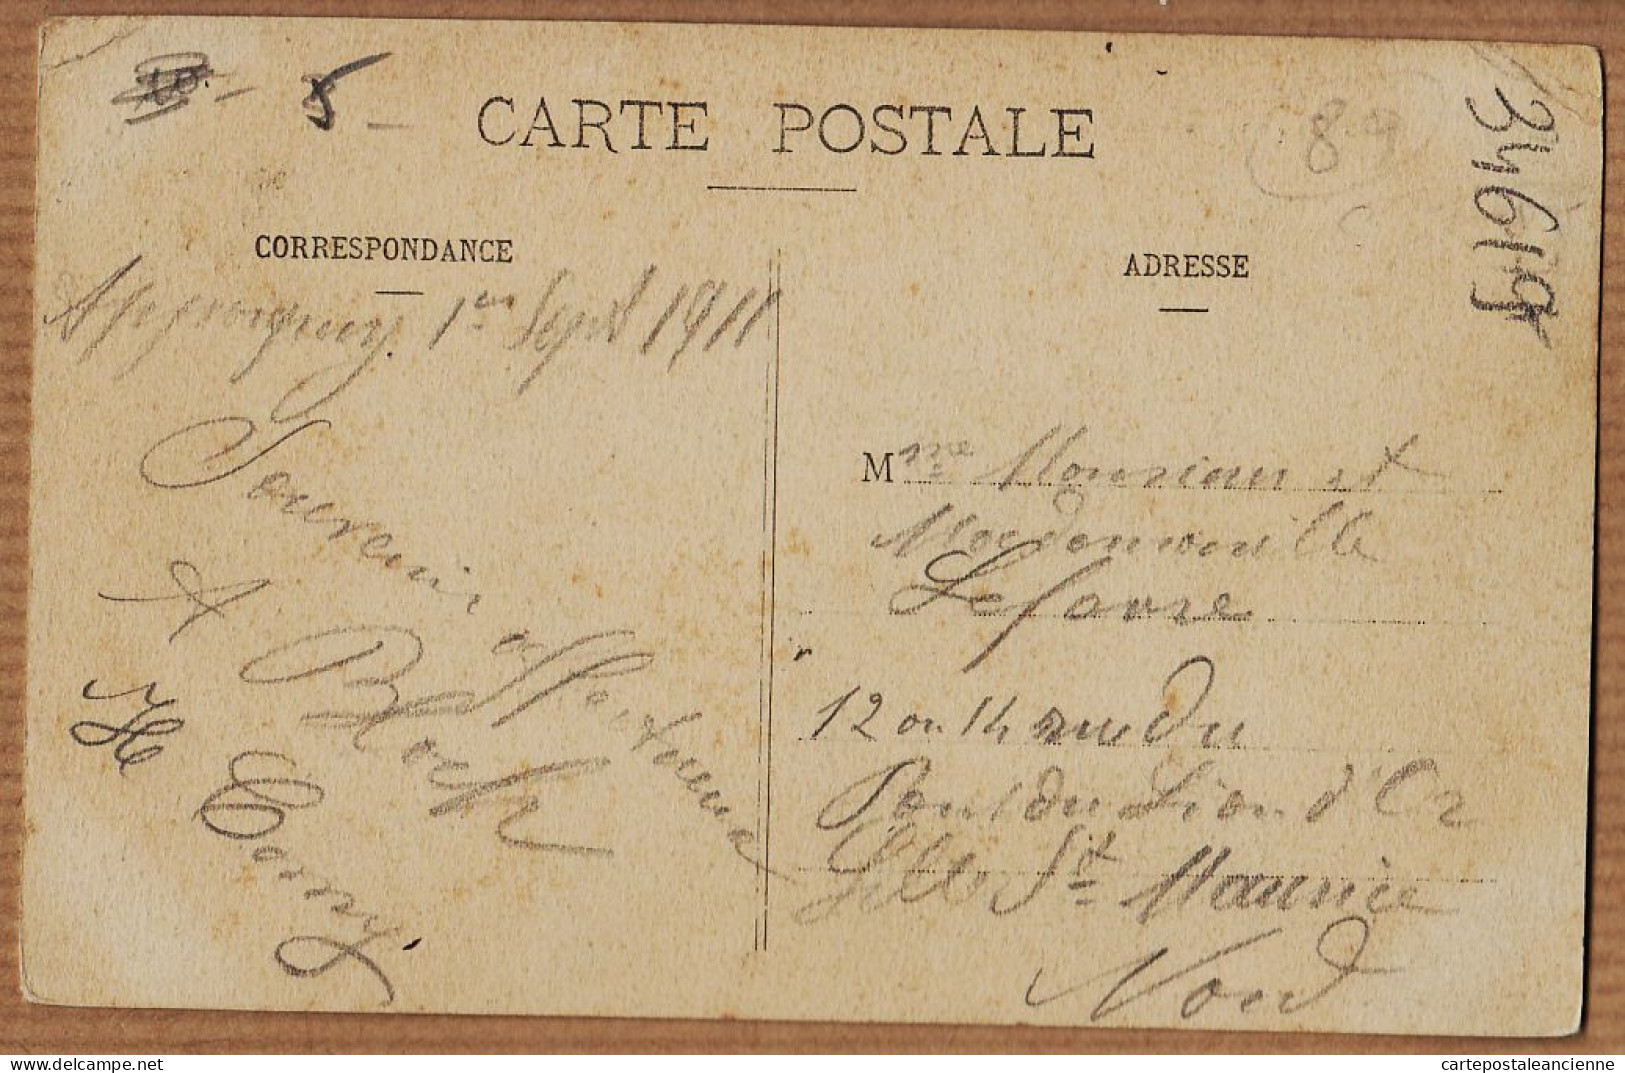 5 -
CARTE POSTALE
84
34619
CORRESPONDANCE
Appoigny. 1er Sept 1911
Souvenir affectueux
A Bloch
H Camy.
ADRESSE
Mme Monsieur et
Mademoiselle
Lefavre
12 ou 14 rue du
Pont du Lion d'Or
Lille St Maurice
Nord
cartepostaleancienne